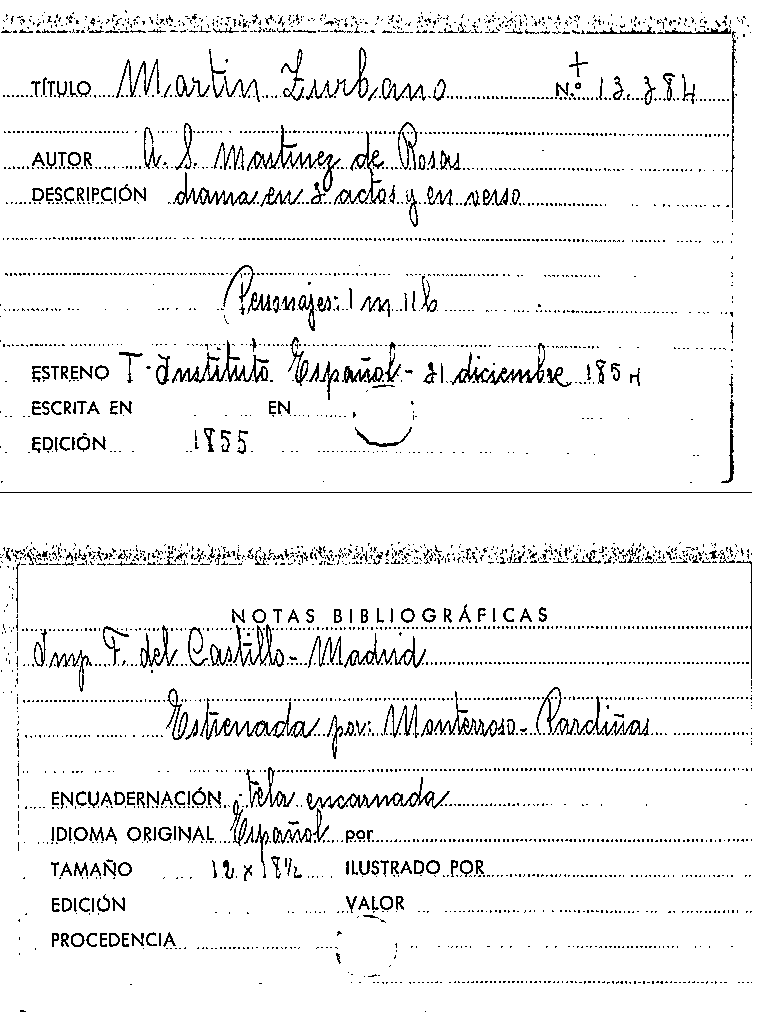 TÍTULO Martin Zurbano N.º 13.384
AUTOR A. S. Martinez de Rosas
DESCRIPCIÓN drama en 3 actos y en verso
Personajes: 1 m 11 h
ESTRENO T. Instituto Español - 21 diciembre 1854
ESCRITA EN EN
EDICIÓN 1855
NOTAS BIBLIOGRÁFICAS
Imp F. del Castillo - Madrid
Estrenada por: Monterroso - Pardiñas
ENCUADERNACIÓN tela encarnada
IDIOMA ORIGINAL Español por
TAMAÑO 12 x 18½ ILUSTRADO POR
EDICIÓN VALOR
PROCEDENCIA